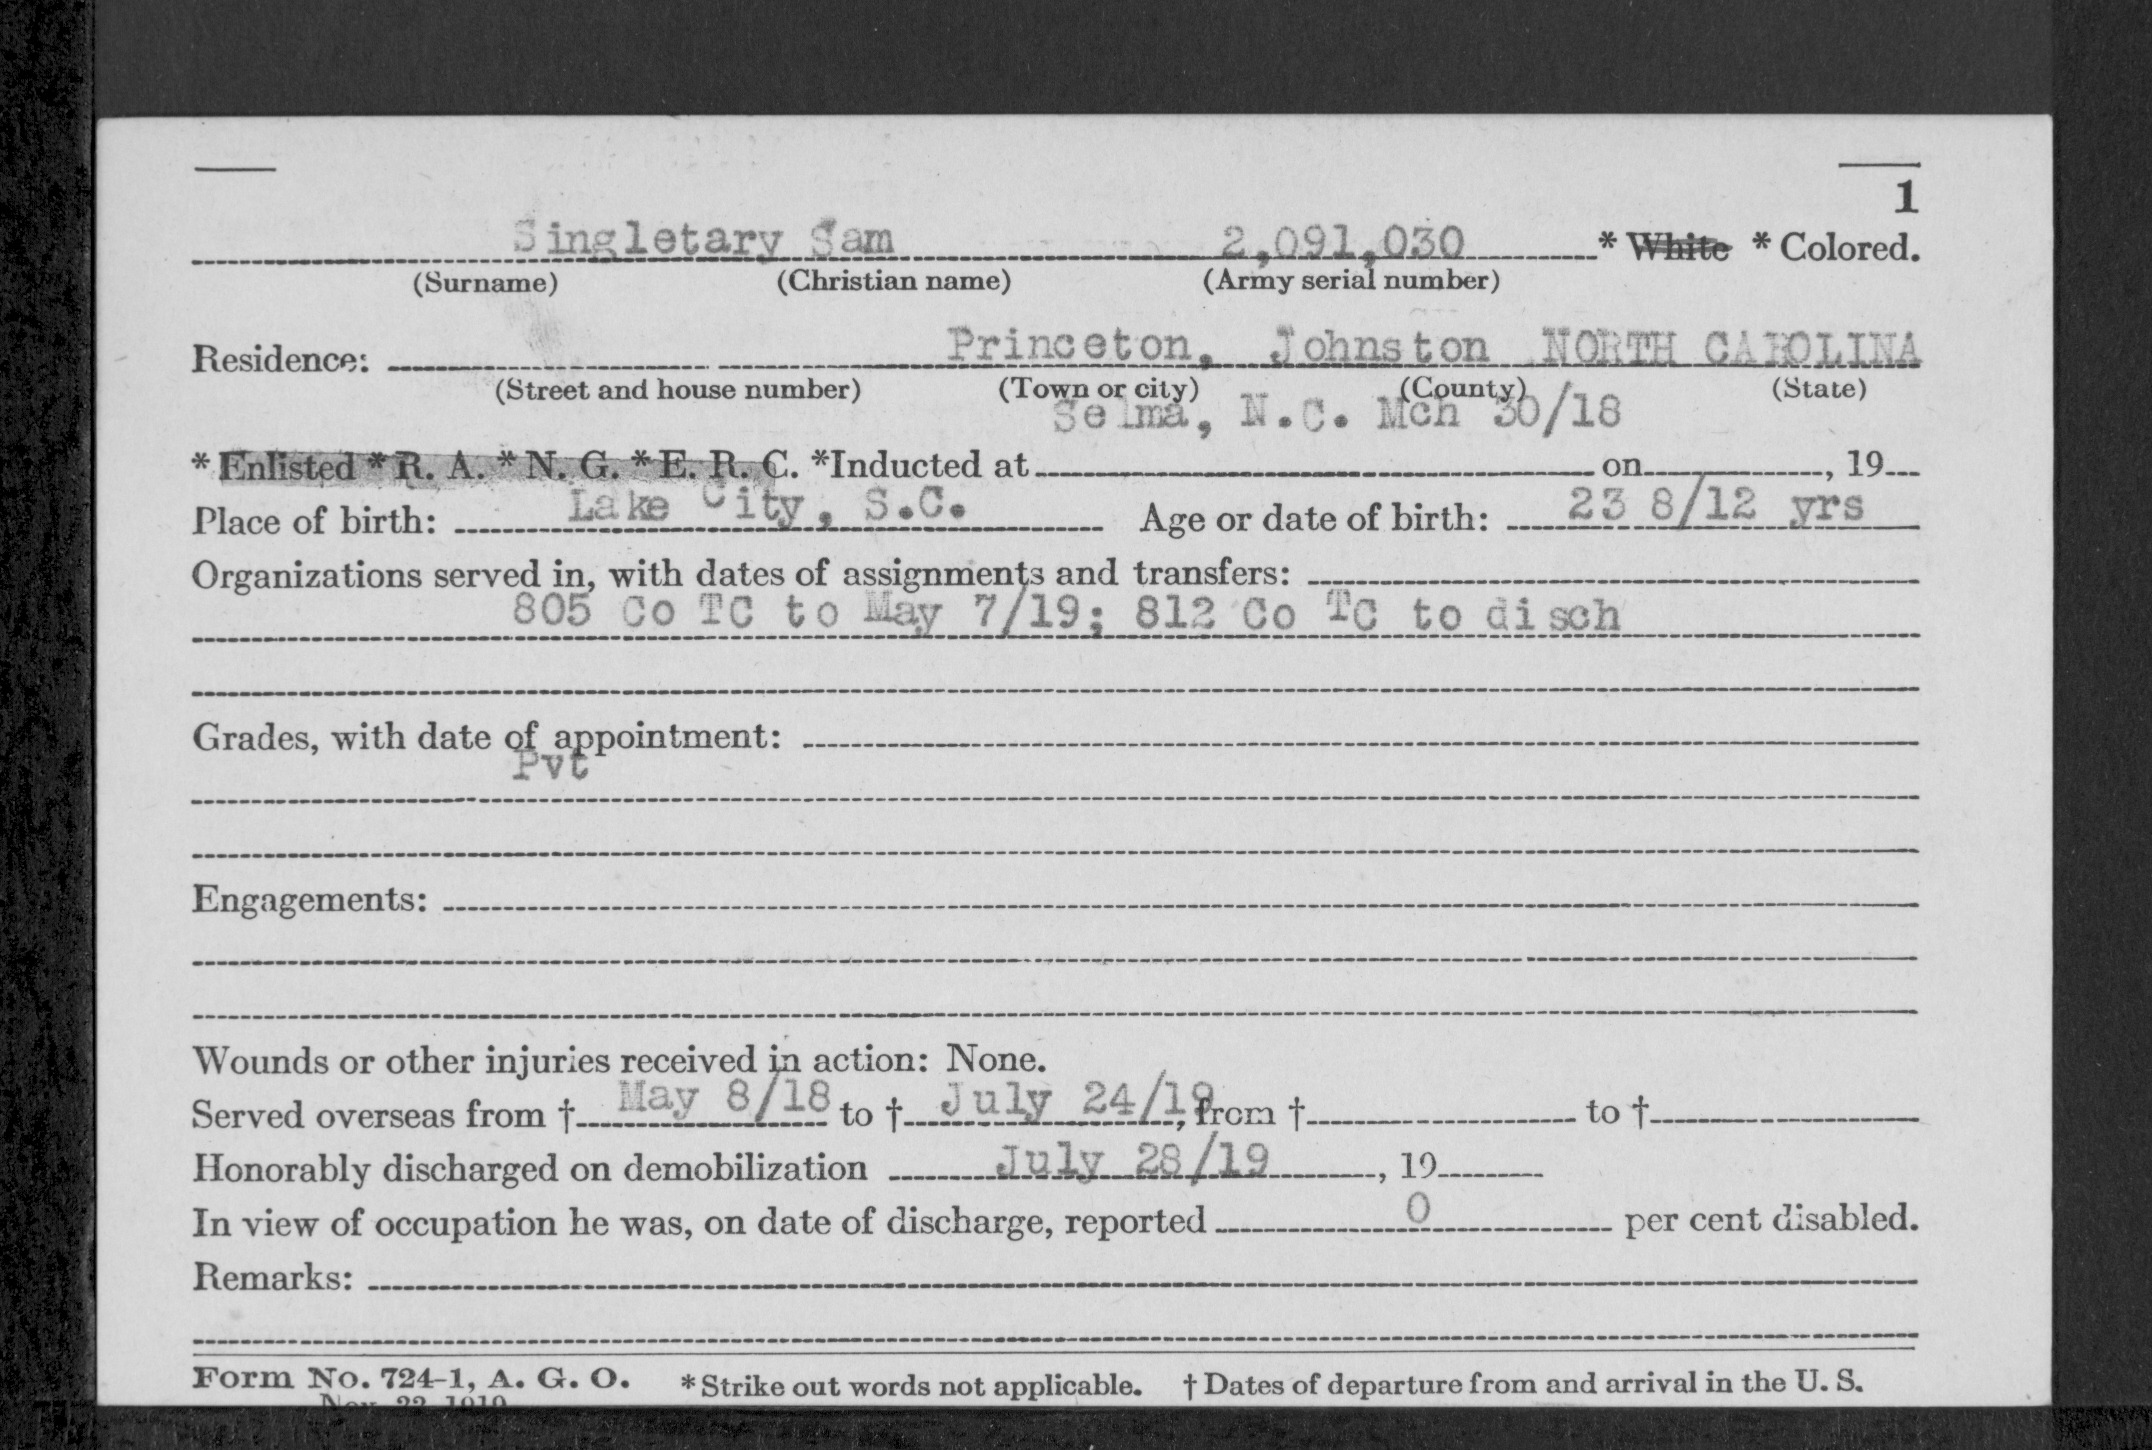 1
Singletary Sam 2,091,030 * White * Colored.
(Surname) (Christian name) (Army serial number)
Residence: Princeton, Johnston NORTH CAROLINA
(Street and house number) (Town or city) (County) (State)
Selma, N.C. Mch 30/18
* Enlisted * R. A. * N. G. * E. R. C. *Inducted at on , 19
Place of birth: Lake City, S.C. Age or date of birth: 23 8/12 yrs
Organizations served in, with dates of assignments and transfers:
805 Co TC to May 7/19; 812 Co TC to disch
Grades, with date of appointment:
Pvt
Engagements:
Wounds or other injuries received in action: None.
Served overseas from † May 8/18 to † July 24/19, from † to †
Honorably discharged on demobilization July 28/19, 19
In view of occupation he was, on date of discharge, reported 0 per cent disabled.
Remarks:
Form No. 724-1, A. G. O. * Strike out words not applicable. † Dates of departure from and arrival in the U. S.
Nov. 22, 1919